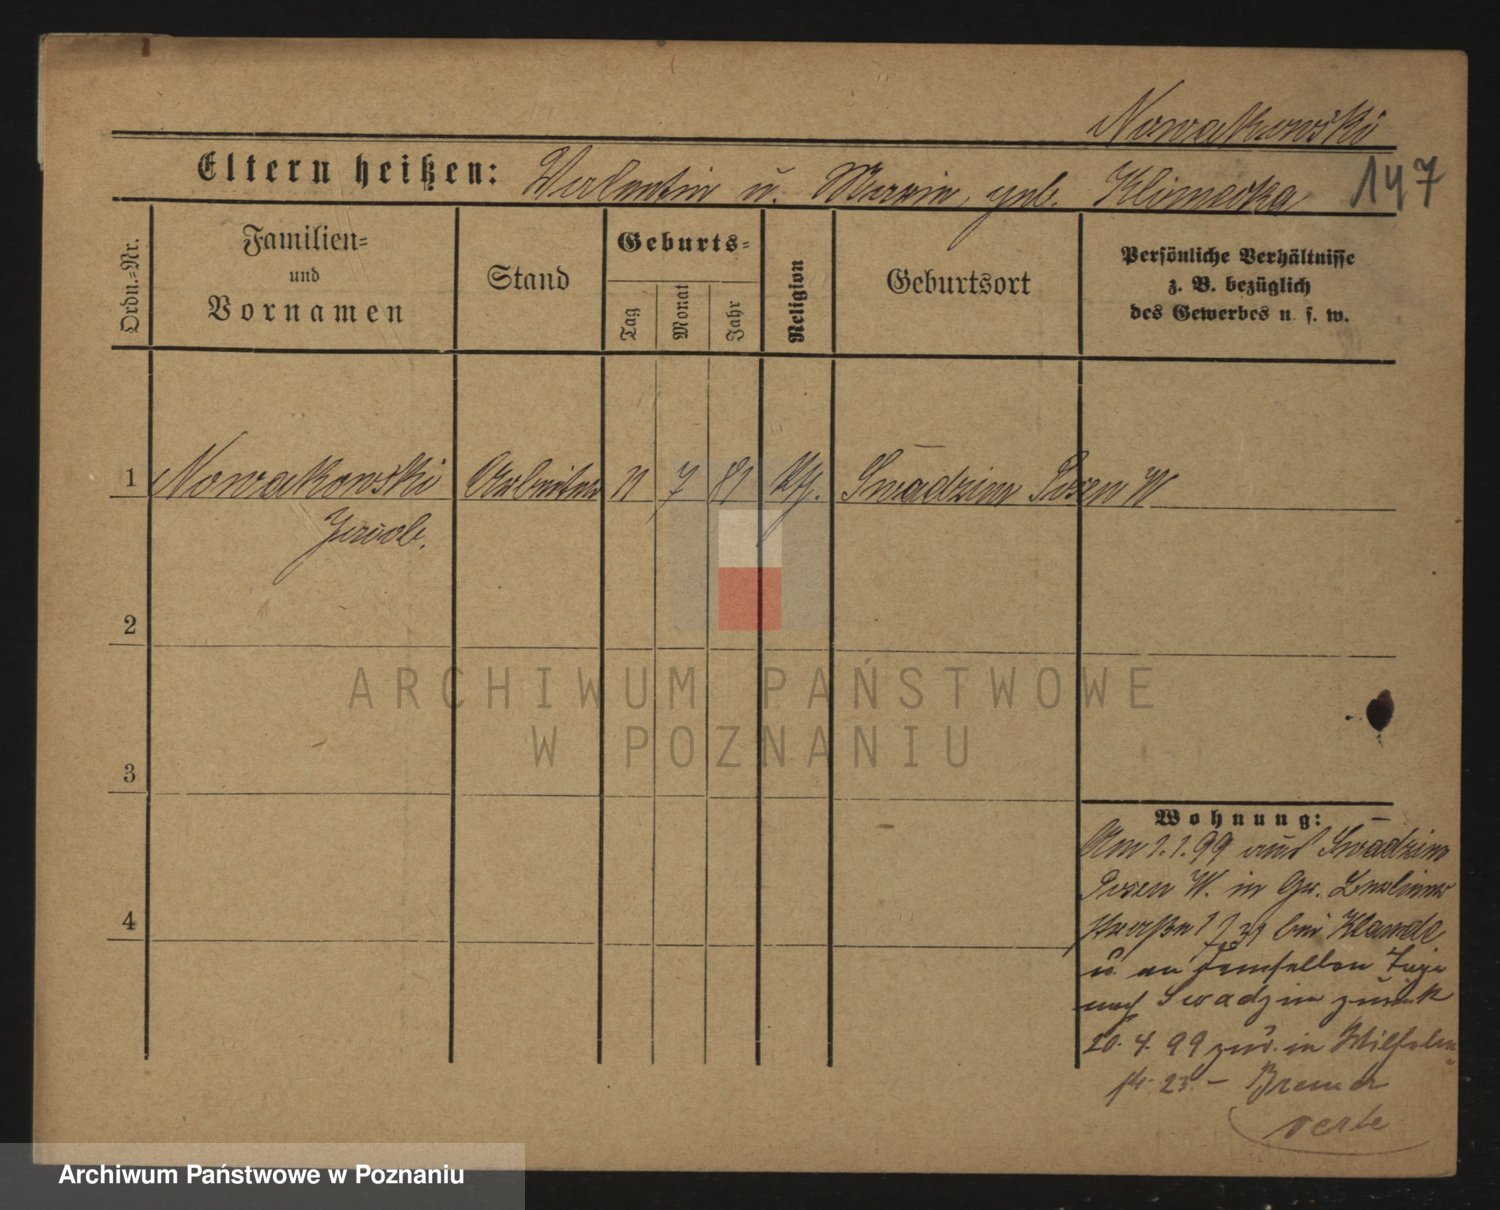 Nowakowski
Eltern heißen: Valentin u. Marie, geb. Klimecka 147
Ordn.-Nr.
Familien-
und
Vornamen
Stand
Geburts-
Tag
Monat
Jahr
Religion
Geburtsort
Persönliche Verhältnisse
z. B. bezüglich
des Gewerbes u. s. w.
1 Nowakowski Arbeiter 11 7 81 kth. Swadzim Posen W
Jacob.
2
3
4
Wohnung:
Am 1.1.99 aus Swadzim
Posen W. in Gr. Berliner
straße bei
u. an demselben Tage
nach Swadzim zurück
20. 4. 99 zur. in Wilhelm-
str. 23. –
ARCHIWUM PAŃSTWOWE
W POZNANIU
Archiwum Państwowe w Poznaniu